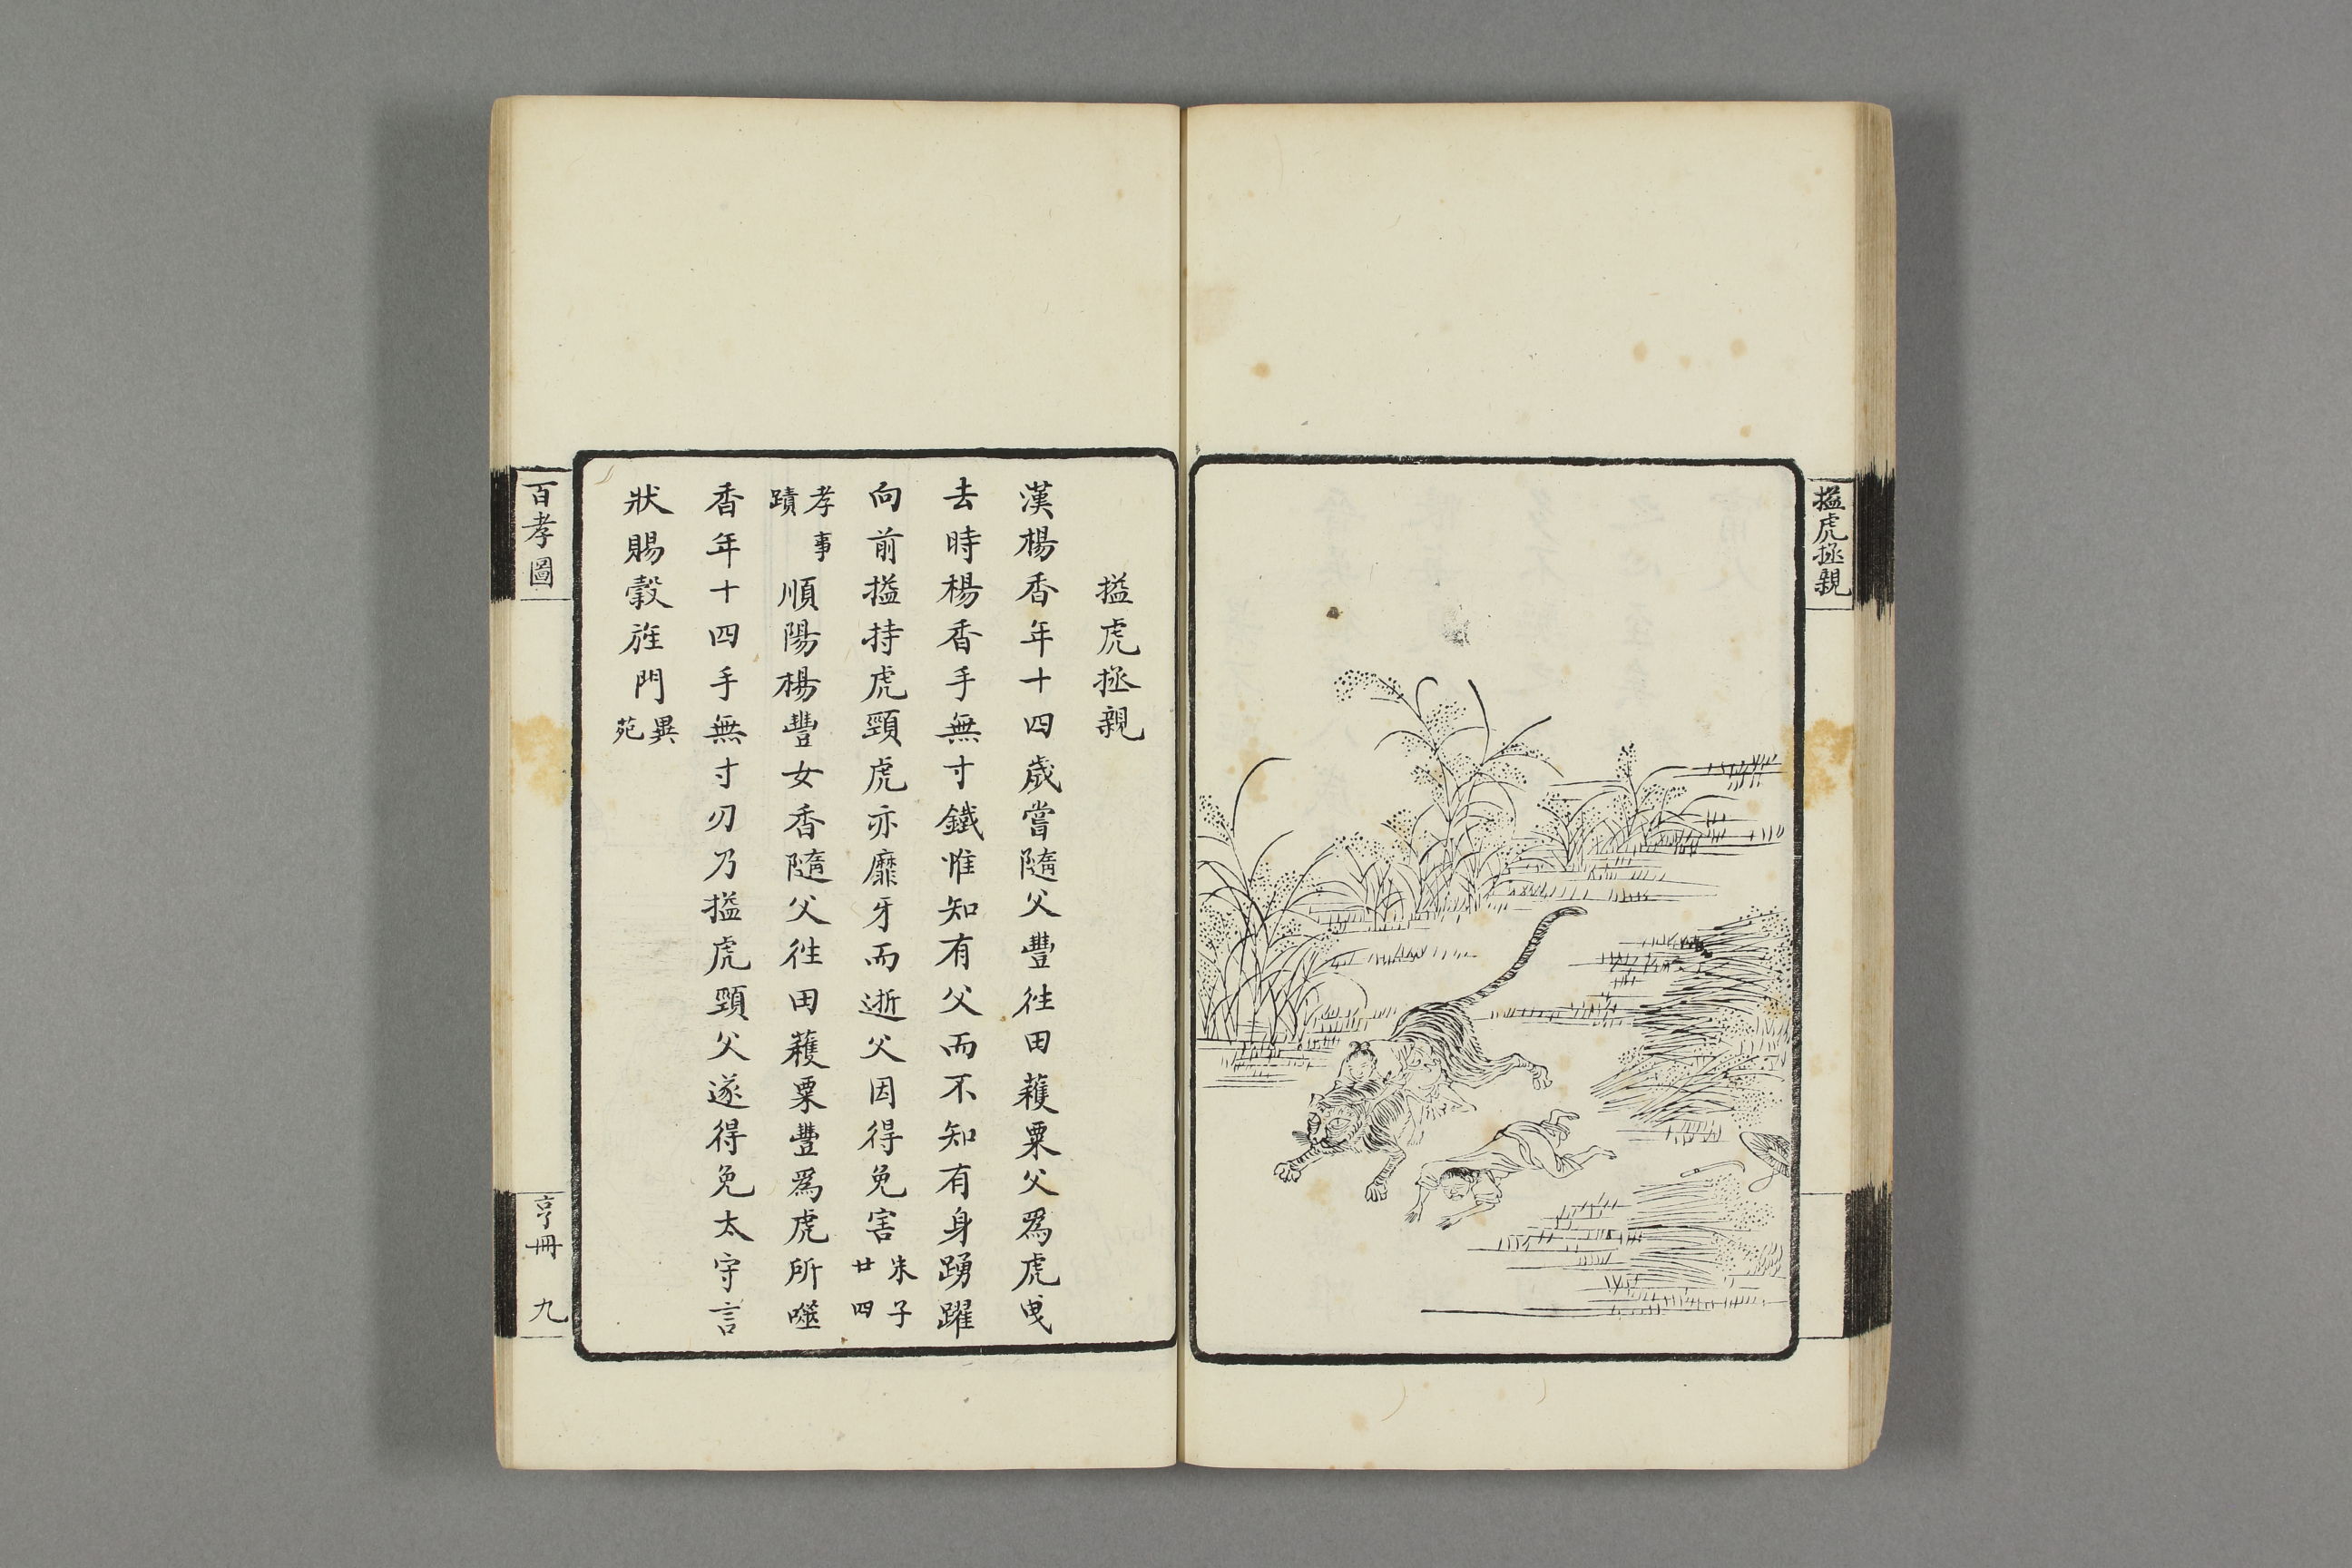 搤虎拯親
搤虎拯親
漢楊香年十四歲嘗隨父豐徃田穫粟父爲虎曳
去時楊香手無寸鐵惟知有父而不知有身踴躍
向前搤持虎頸虎亦靡牙而逝父因得免害朱子廿四
孝事蹟順陽楊豐女香隨父徃田穫粟豐爲虎所噬
香年十四手無寸刃乃搤虎頸父遂得免太守言
狀賜穀旌門異苑
百孝圖
亨冊
九